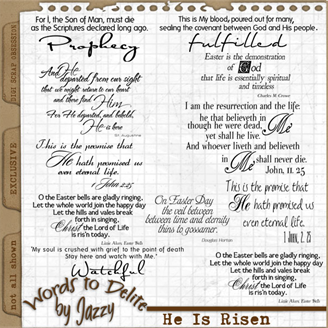 For I, the Son of Man, must die
as the Scriptures declared long ago.
Prophecy
And He
departed from our sight
that we might return to our heart
and there find Him
For He departed, and behold,
He is here
St. Augustine
This is the promise that
He hath promised us
even eternal life.
1 John 2:25
Let the bells be gladly ringing,
Let the whole world join the happy day
Let the hills and vales break
forth in singing,
Christ the Lord of Life
is ris'n today.
"My soul is crushed with grief to the point of death
Stay here and watch with Me."
Watchful
This is My blood, poured out for many,
sealing the covenant between God and His people.
Fulfilled
Easter is the demonstration
of God
that life is essentially spiritual
and timeless
Charles M. Crowe
I am the resurrection and the life.
he that believeth in Me
though he were dead,
yet shall he live.
And whoever liveth and believeth
in Me shall never die.
John, 11. 25
This is the promise that
He hath promised us
even eternal life.
1 John, 2. 25
On Easter Day
the veil between
between time and eternity
thins to gossamer.
Douglas Horton
Let the bells be gladly ringing,
Let the whole world join the happy day
Let the hills and vales break
forth in singing,
Christ the Lord of Life
is ris'n today.
DIGI SCRAP OBSESSION
EXCLUSIVE
not all shown
Words to Delite
by Jazzy
He Is Risen